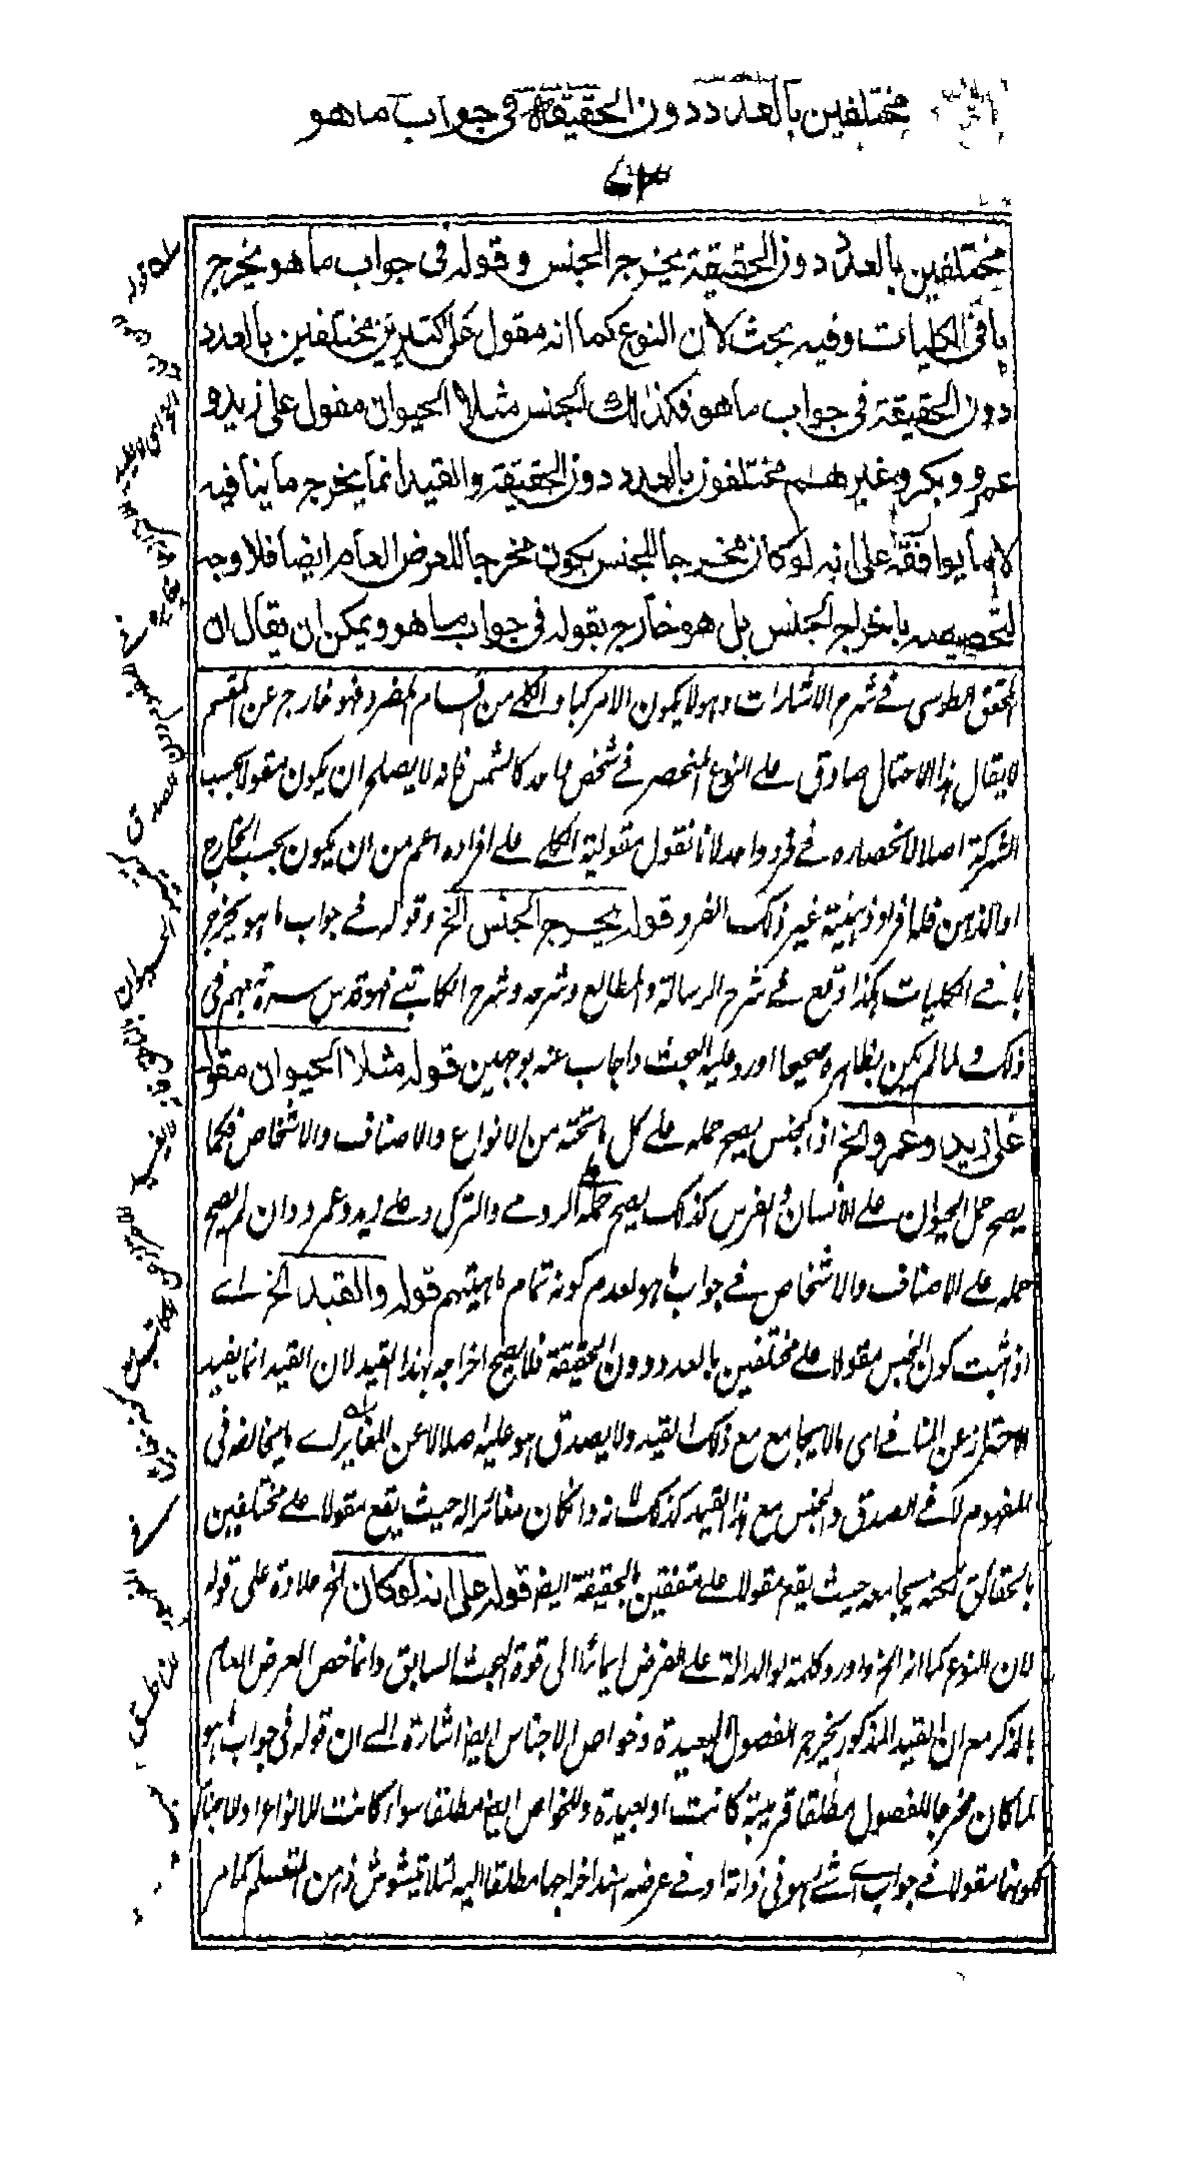 مختلفين بالعدد دون الحقيقة في جواب ما هو
مختلفين بالعدد دون الحقيقة يخرج الجنس و قوله في جواب ما هو يخرج
باقي الكليات وفيه بحث لان النوع كما انه مقول على كثيرين مختلفين بالعدد
دون الحقيقة في جواب ما هو فكذلك الجنس مثلا الحيوان مقول على زيد و
عمرو وبكر وغيرهم مختلفون بالعدد دون الحقيقة والقيد انما يخرج ما ينافيه
لا ما يوافقه على انه لو كان مخرجا للجنس يكون مخرجا للعرض العام ايضا فلا وجه
لتخصيصه باخراج الجنس بل هو خارج بقوله في جواب ما هو ويمكن ان يقال ان
المحقق الطوسى فے شرح الاشارات وهو لا يكون الا مركبا والكلے من اقسام المفرد فهو خارج عن المقسم
لا يقال هذا الاحتمال صادق علے النوع المنحصر فے شخص واحد كالشمس فانه لا يصلح ان يكون مقولا بحسب
الشركة اصلا لانحصاره فے فرد واحد لانا نقول مقولية الكلے علے افراده اعم من ان يكون بحسب الخارج
او الذهن فلها افراد ذهنية غير ذلك الفرد قوله يخرج الجنس الخ وقوله فے جواب ما هو يخرج
باقے الكليات هكذا وقع فے شرح الرسالة والمطالع وشرحه وشرح الكاتبے فهو قدس سره تبعهم فى
ذلك ولما لم يكن بظاهره صحيحا اورد عليه البحث واجاب عنه بوجهين قوله مثلا الحيوان مقول
على زيد وعمرو الخ اذ الجنس يصح حمله علے كل ما تحته من الانواع والاصناف والاشخاص فكما
يصح حمل الحيوان علے الانسان والفرس كذلك يصح حمله الرومے والتركى وعلے زيد وعمرو وان لم يصح
حمله علے الاصناف والاشخاص فے جواب ما هو لعدم كونه تمام ماهيتهم قوله والقيد الخ اے
اذ اثبت كون الجنس مقولا علے مختلفين بالعدد دون الحقيقة فلا يصح اخراجه بهذا القيد لان القيد انما يفيد
الاحتراز عن المنافے اى ما لا يجامع مع ذلك القيد ولا يصدق هو عليه اصلا لا عن المغاير اے ما يخالفه فى
المفهوم لا فے الصدق والجنس مع هذا القيد كذلك لانه وان كان مغائرا له حيث يقع مقولا علے مختلفين
بالحقائق لكنه يجامعه حيث يقع مقولا علے متفقين بالحقيقة ايضا قوله على انه لو كان الخ علاوة على قوله
لان النوع كما انه الخ واورد كلمة لو الدالة علے الفرض ايمائا الى قوة البحث السابق وانما خص العرض العام
بالذكر مع ان القيد المذكور يخرج الفصول البعيدة وخواص الاجناس ايضا اشارة الے ان قوله فى جواب ما هو
لما كان مخرجا للفصول مطلقا قريبة كانت او بعيدة وللخواص ايضا مطلقا سواء كانت للانواع او للاجناس
لكونهما مقولا فے جواب اے شے هو فى ذاته او فے عرضه اسند اخراجها مطلقا اليه لئلا يتشوش ذهن المتعلم كما مر